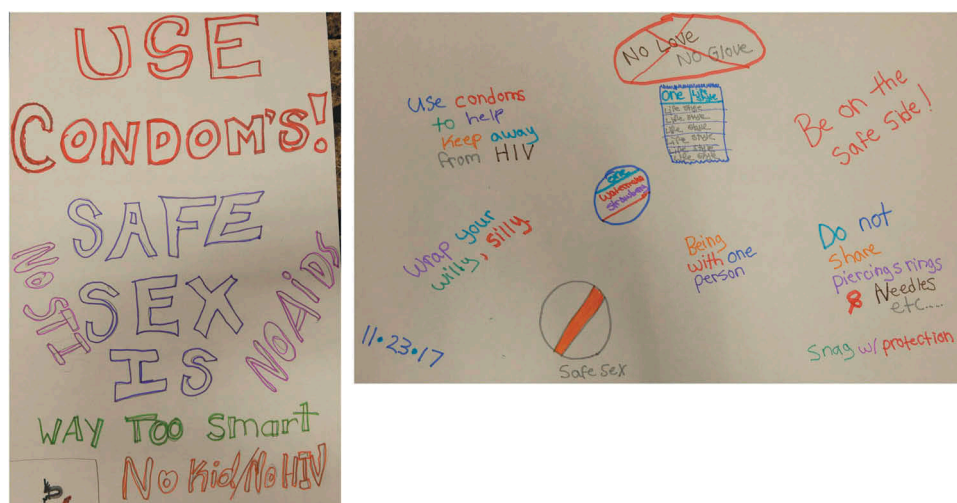 USE
CONDOM'S!
SAFE
SEX
IS
NO STI
NO AiDS
WAY TOO Smart
No Kid/No HIV
NO LOVE
NO Glove
Use condoms
to help
Keep away
from HIV
One
Life style
Life style
Life style
Life style
Life style
Life style
Be on the
safe side!
One
strawberry
Wrap your
willy, silly
Being
with one
person
Do not
share
piercings rings
Needles
etc....
11.23.17
Safe sex
Snag w/ protection